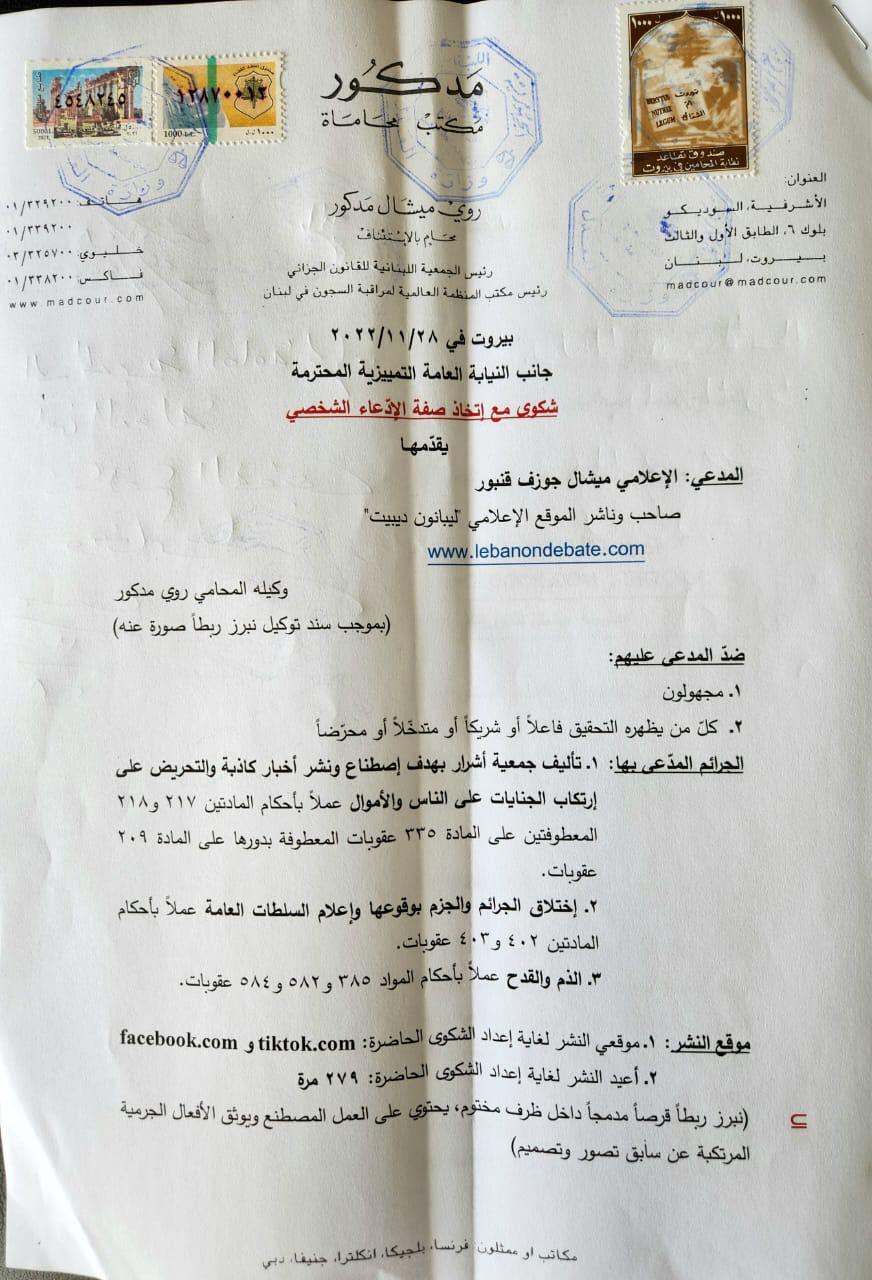 مدكور
مكتب محاماة
روي ميشال مدكور
محام بالإستئناف
رئيس الجمعية اللبنانية للقانون الجزائي
رئيس مكتب المنظمة العالمية لمراقبة السجون في لبنان
العنوان:
الأشرفية، السوديكو
بلوك ٦، الطابق الأول والثالث
بيروت، لبنان
madcour@madcour.com
هاتف: ٠١/٣٢٩٢٠٠
٠١/٣٣٩٢٠٠
خليوي: ٠٣/٣٢٥٧٠٠
فاكس: ٠١/٣٣٨٢٠٠
www.madcour.com
٤٥٤٨٢٤٥
١٢٨٧٠٠١٢
1000
١٠٠٠ل.ل
١٠٠٠ل.ل
BERYTUS
NUTRIX
LEGUM
صندوق تقاعد
نقابة المحامين في بيروت
بيروت في ٢٠٢٢/١١/٢٨
جانب النيابة العامة التمييزية المحترمة
شكوى مع إتخاذ صفة الإدّعاء الشخصي
يقدّمها
المدعي: الإعلامي ميشال جوزف قنبور
صاحب وناشر الموقع الإعلامي "ليبانون ديبيت"
www.lebanondebate.com
وكيله المحامي روي مدكور
(بموجب سند توكيل نبرز ربطاً صورة عنه)
ضدّ المدعى عليهم:
١. مجهولون
٢. كلّ من يظهره التحقيق فاعلاً أو شريكاً أو متدخّلاً أو محرّضاً
الجرائم المدّعى بها: ١. تأليف جمعية أشرار بهدف إصطناع ونشر أخبار كاذبة والتحريض على
إرتكاب الجنايات على الناس والأموال عملاً بأحكام المادتين ٢١٧ و٢١٨
المعطوفتين على المادة ٣٣٥ عقوبات المعطوفة بدورها على المادة ٢٠٩
عقوبات.
٢. إختلاق الجرائم والجزم بوقوعها وإعلام السلطات العامة عملاً بأحكام
المادتين ٤٠٢ و٤٠٣ عقوبات.
٣. الذم والقدح عملاً بأحكام المواد ٣٨٥ و٥٨٢ و٥٨٤ عقوبات.
موقع النشر: ١. موقعي النشر لغاية إعداد الشكوى الحاضرة: tiktok.com و facebook.com
٢. أعيد النشر لغاية إعداد الشكوى الحاضرة: ٢٧٩ مرة
(نبرز ربطاً قرصاً مدمجاً داخل ظرف مختوم، يحتوي على العمل المصطنع ويوثق الأفعال الجرمية
المرتكبة عن سابق تصور وتصميم)
مكاتب او ممثلون: فرنسا، بلجيكا، انكلترا، جنيفا، دبي